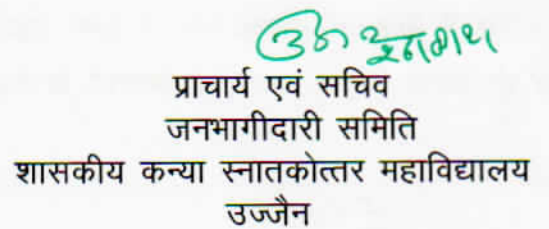 प्राचार्य एवं सचिव
जनभागीदारी समिति
शासकीय कन्या स्नातकोत्तर महाविद्यालय
उज्जैन